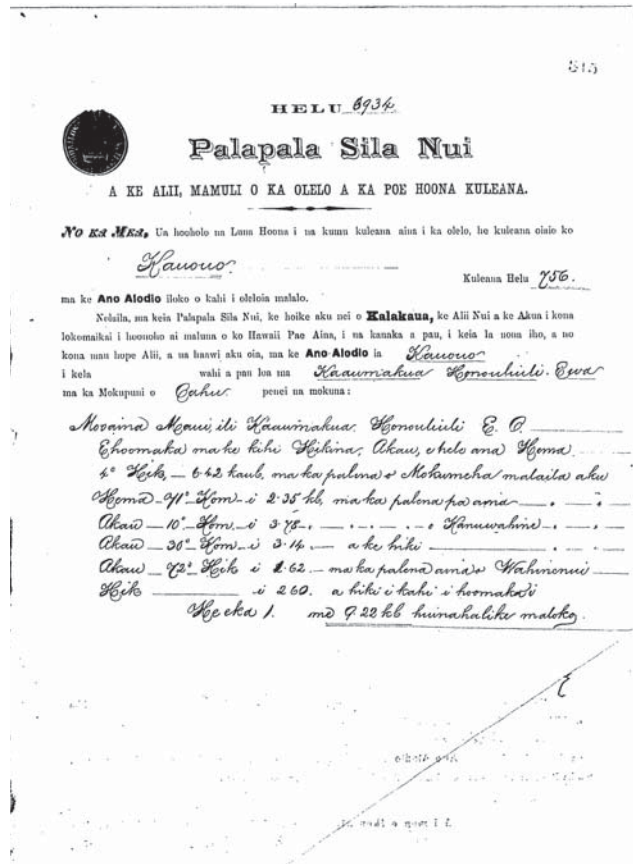 315
HELU 6934
Palapala Sila Nui
A KE ALII, MAMULI O KA OLELO A KA POE HOONA KULEANA.
No KA MEA, Ua hooholo na Luna Hoona i na kumu kuleana aina i ka olelo, he kuleana oiaio ko
Kauouo.
Kuleana Helu 756.
ma ke Ano Alodio iloko o kahi i oleloia malalo.
Nolaila, ma keia Palapala Sila Nui, ke hoike aku nei o Kalakaua, ke Alii Nui a ke Akua i kona
lokomaikai i hoonoho ai maluna o ko Hawaii Pae Aina, i na kanaka a pau, i keia la nona iho, a no
kona mau hope Alii, a ua haawi aku oia, ma ke Ano Alodio ia Kauouo
i kela wahi a pau loa ma Kaaumakua Honouliuli. Ewa
ma ka Mokupuni o Oahu penei na mokuna:
Mooaina Maui, ili Kaaumakua. Honouliuli E. O.
Ehoomaka ma ke kihi Hikina, Akau, e holo ana Hema
4° Hik. — 6.42 kaul. ma ka palena o Mokumeha malaila aku
Hema — 71° Kom — i 2.35 kb, ma ka palena pa aina — " — "
Akau — 10° Kom — i 3.78 — " — " — " — o Kanuwahine — " — "
Akau — 30° Kom — i 3.14. — a ke hiki
Akau — 72° Hik i 1.62 — ma ka palena aina o Wahinenui
Hik i 260. a hiki i kahi i hoomaka'i
He eka 1. me 9.22 kb huinahalike maloko.